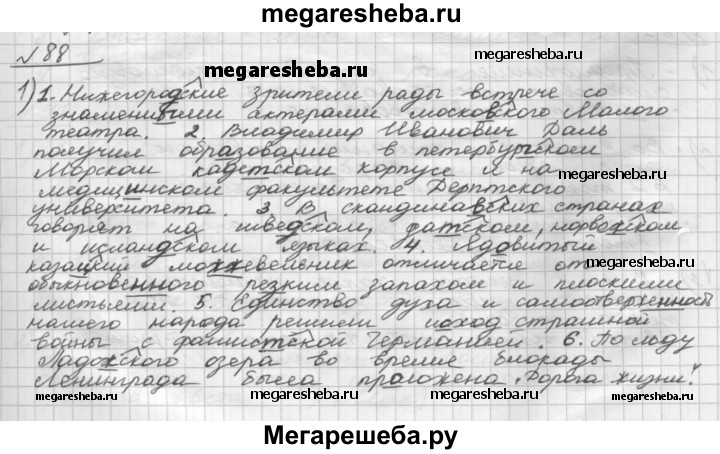 megaresheba.ru
№ 88
megaresheba.ru
megaresheba.ru
1) 1. Нижегородские зрители рады встрече со
знаменитыми актерами московского Малого
театра. 2. Владимир Иванович Даль
получил образование в петербургском
Морском кадетском корпусе и на
медицинском факультете Дерптского
университета. 3 В скандинавских странах
говорят на шведском, датском, норвежском
и исландском языках. 4. Ядовитый
казацкий можжевельник отличается от
обыкновенного резким запахом и плоскими
листьями. 5. Единство духа и самоотверженность
нашего народа решили исход страшной
войны с фашистской Германией. 6. По льду
Ладожского озера во время блокады
Ленинграда была проложена „Дорога жизни".
megaresheba.ru
megaresheba.ru
megaresheba.ru
Мегарешеба.ру